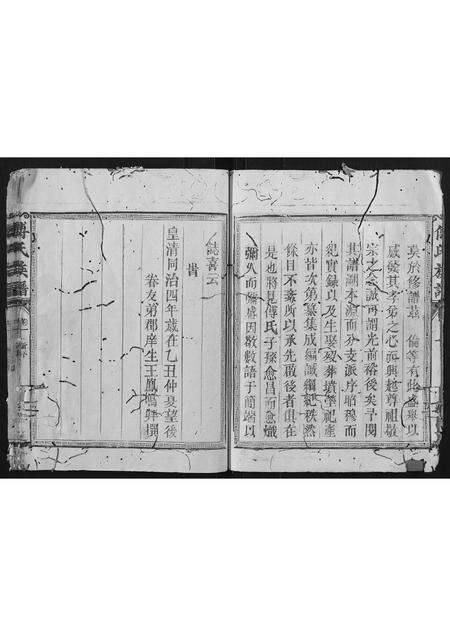 於修譜諸 倫等有此盛舉以
感發其孝弟之心而興起尊祖敬
宗之念誠可謂光前裕後矣予閱
其譜溯本源而分支派序昭穆而
紀實錄以及生娶歿葬墳塋祀產
亦皆次第纂集成編誠綱紀秩然
條目不紊所以承先啟後者俱在
是也將見傅氏子孫愈昌而愈熾
彌久而彌盛因敬數語于簡端以
誌喜云
皆
皇清同治四年歲在乙丑仲夏望後
春友弟郡庠生王鳳 拜撰
傅氏族譜
傅氏族譜